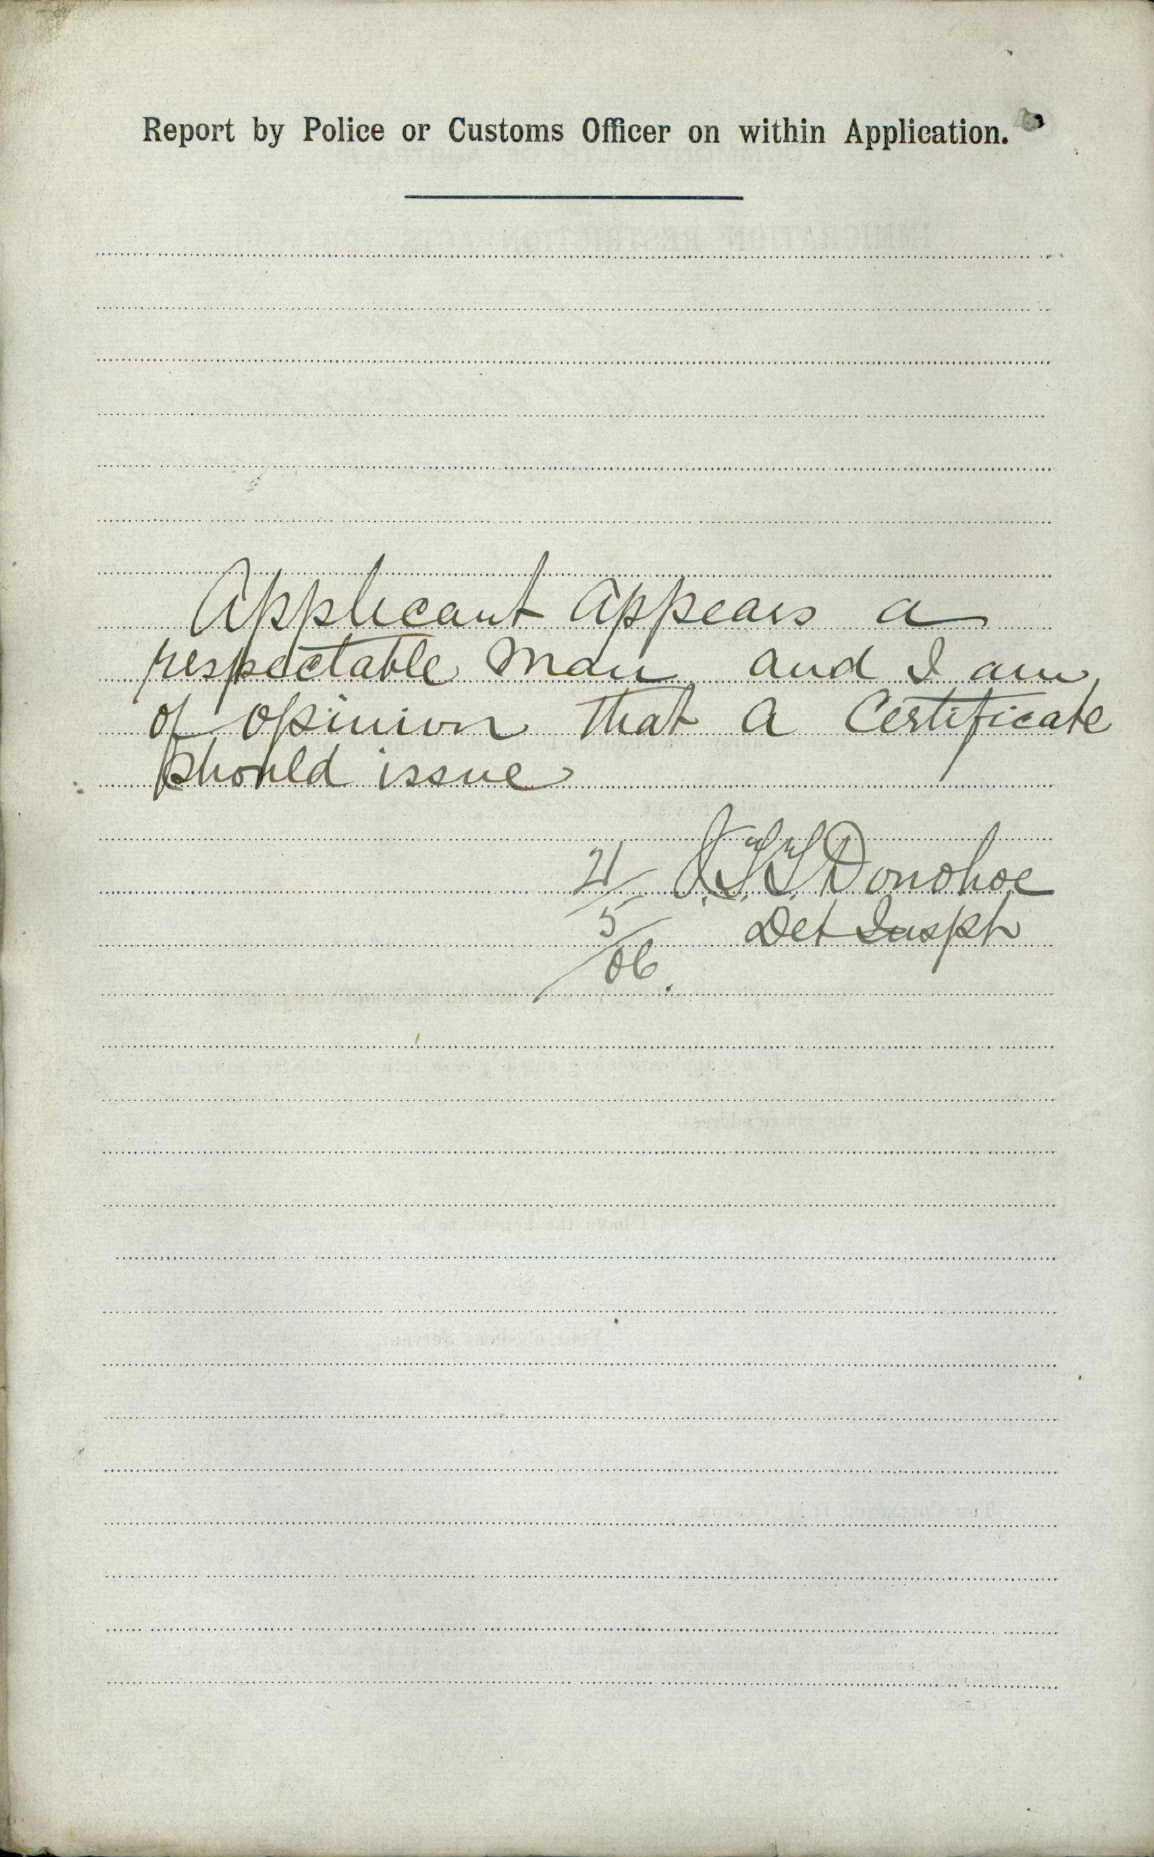 Report by Police or Customs Officer on within Application.
Applicant appears a
respectable man and I am
of opinion that a Certificate
should issue
21/5/06. Donohoe
Det Inspr